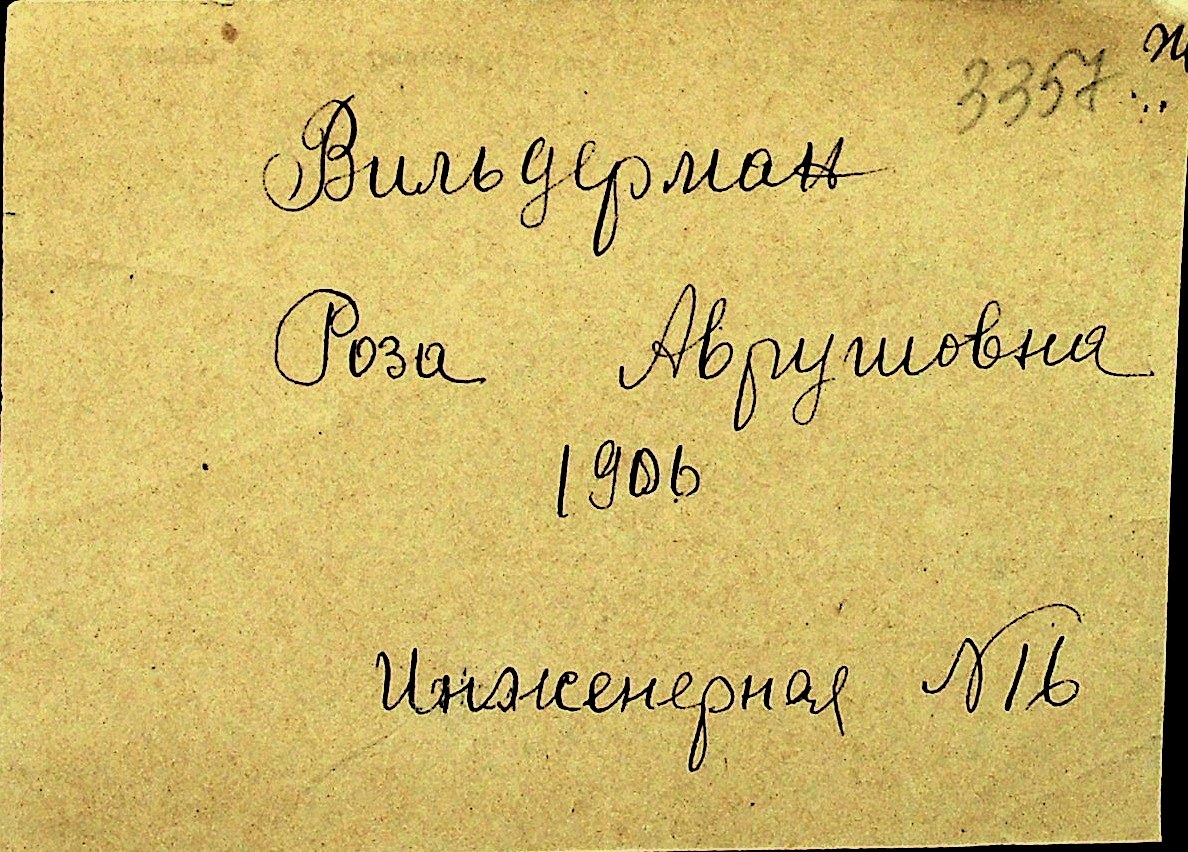 3357
Вильдерман
Роза Аврушовна
1906
Инженерная N 16